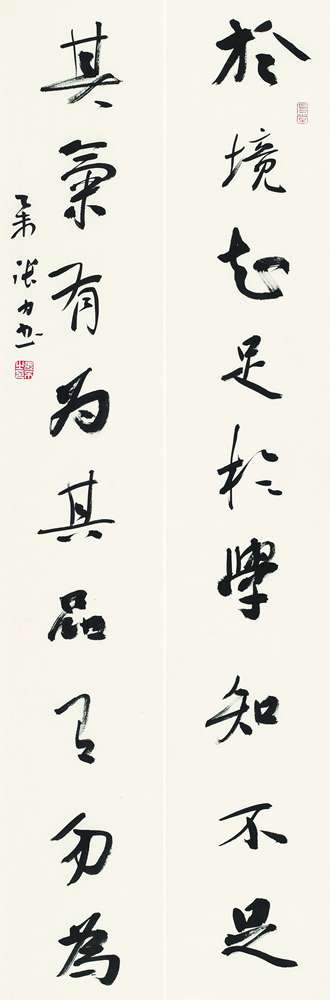 於境知足於學知不足
其氣有為其品有勿為
乙未 張力